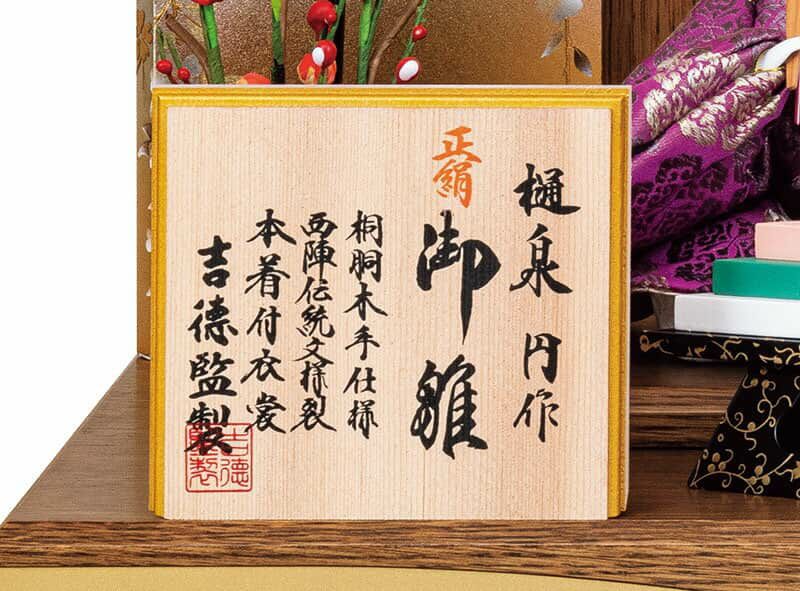 樋泉円作
正絹
御雛
桐胴木手仕様
西陣伝統文様裂
本着付衣裳
吉徳監製
吉徳監製